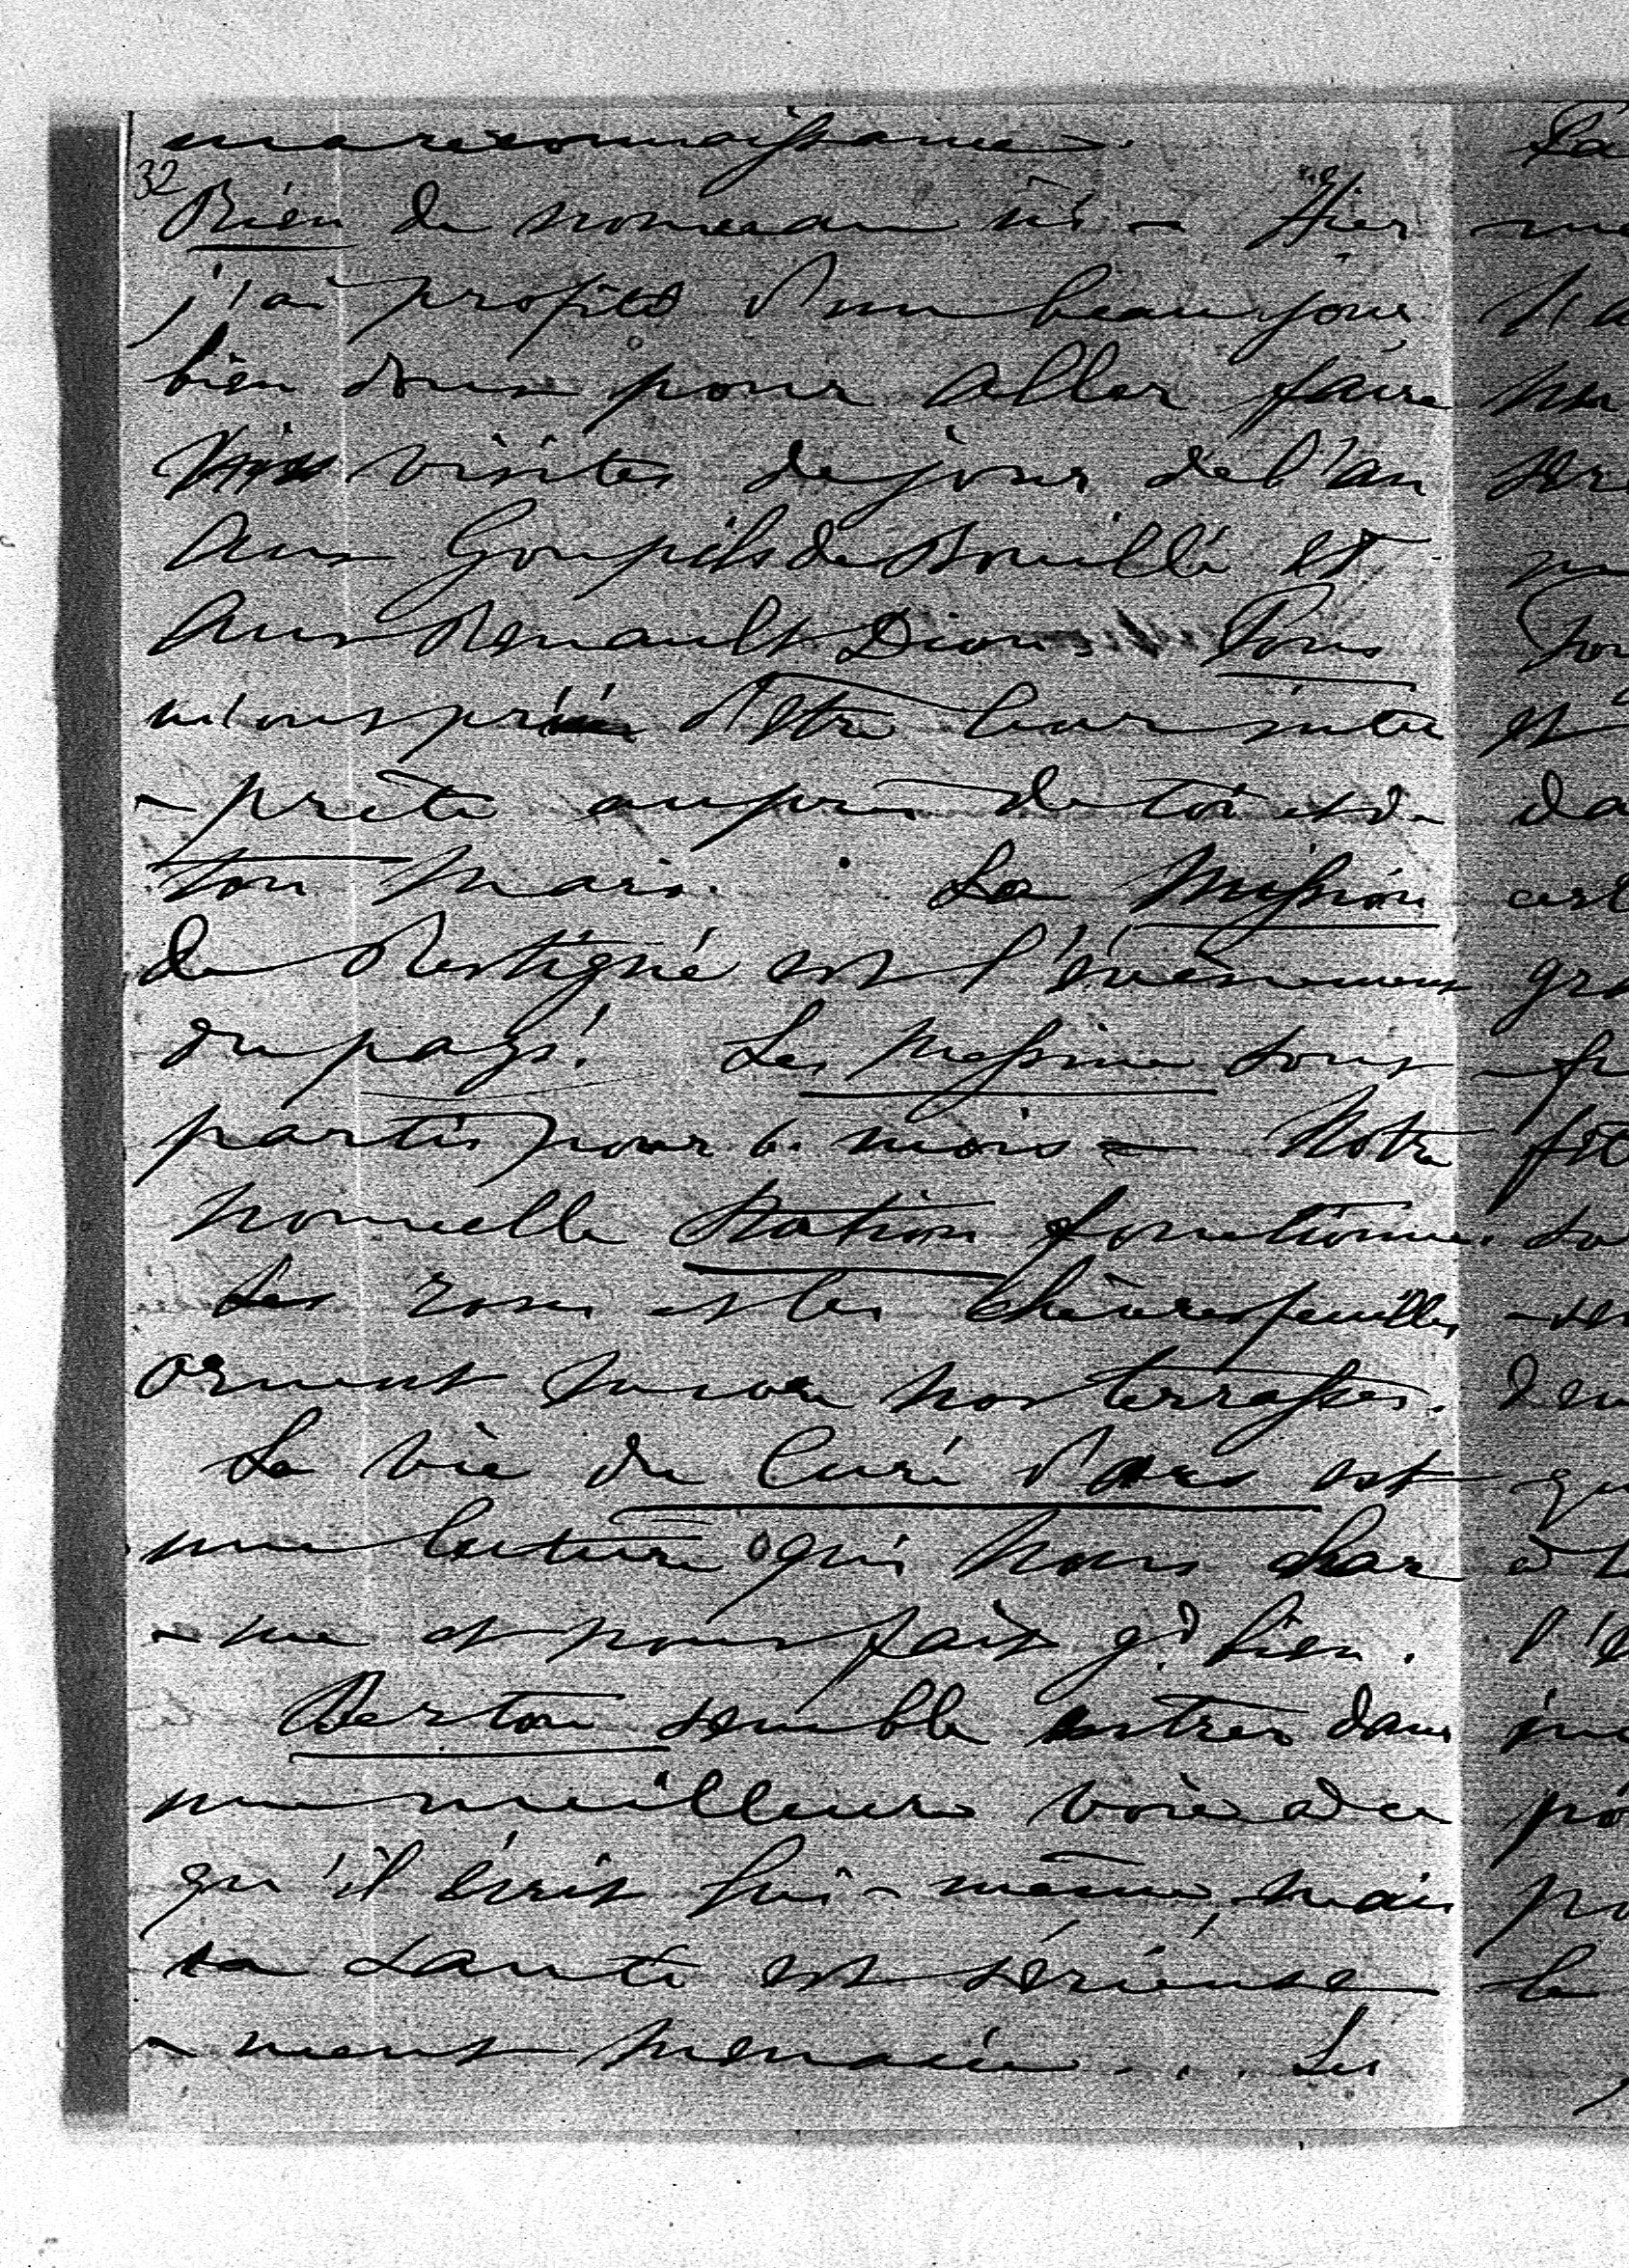 ma reconnaissance.
32
Rien de nouveau ici - Hier
j'ai profité d'un beau jour
bien doux pour aller faire
visites de jour de l'an
aux Goupils de Bouillé et
aux Renault Dion. Tous
m'ont prié d'être leur inter
- prète auprès de toi et de
ton mari. La Mission
de Restigné est l'évènement
du pays! Les Messine sont
partis pour 6. mois - Notre
nouvelle Station fonctionne.
Les roses et les chèvresfeuilles
ornent encore nos terrasses.
La vie du Curé d'Ars est
une lecture qui nous char
- me et nous fait gd bien.
Berton semble entrer dans
une meilleure voie à ce
qu'il écrit lui-même, mais
sa santé est sérieuse
- ment menacée... Les